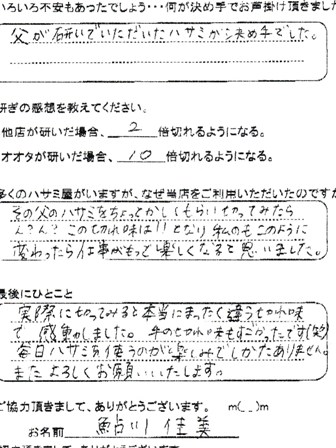 いろいろ不安もあったでしょう・・・何が決め手でお声掛け頂きました
父が研いでいただいたハサミが決め手でした。
研ぎの感想を教えてください。
他店が研いだ場合、2倍切れるようになる。
オオタが研いだ場合、10倍切れるようになる。
多くのハサミ屋がいますが、なぜ当店をご利用いただいたのですか
その父のハサミをちょっとかしてもらい切ってみたら
ん?ん? この切れ味は!!となり 私のも このように
変わったら仕事がもっと楽しくなると思いました。
最後にひとこと
実際に切ってみると本当にまったく違う切れ味
で 感動しました。 手の切れ味もすごかったです(笑)
毎日ハサミを使うのが楽しみでしかたありません。
またよろしくお願いいたします。
ご協力頂きまして、ありがとうございます。 m(__)m
お名前 鮎川 佳美